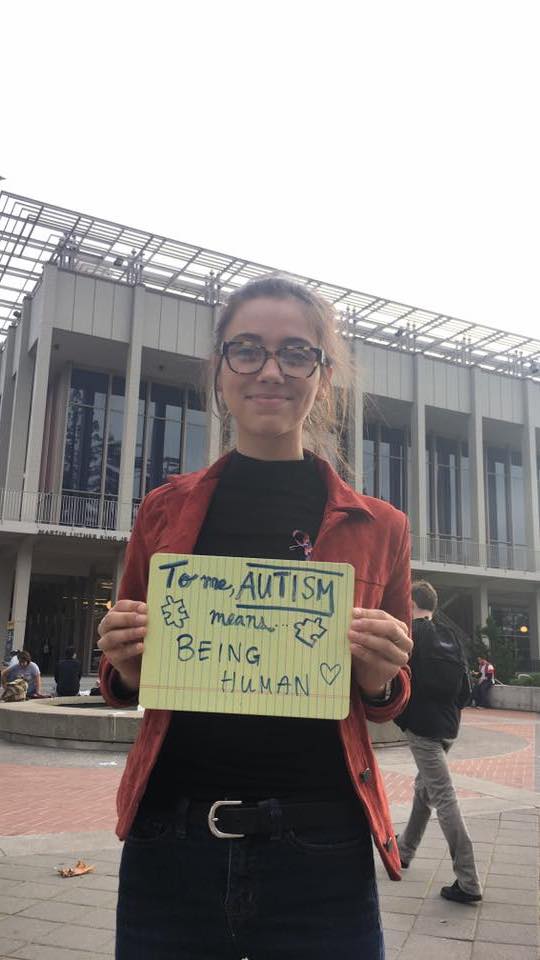 MARTIN LUTHER KING JR
To me, AUTISM
means...
BEING
HUMAN